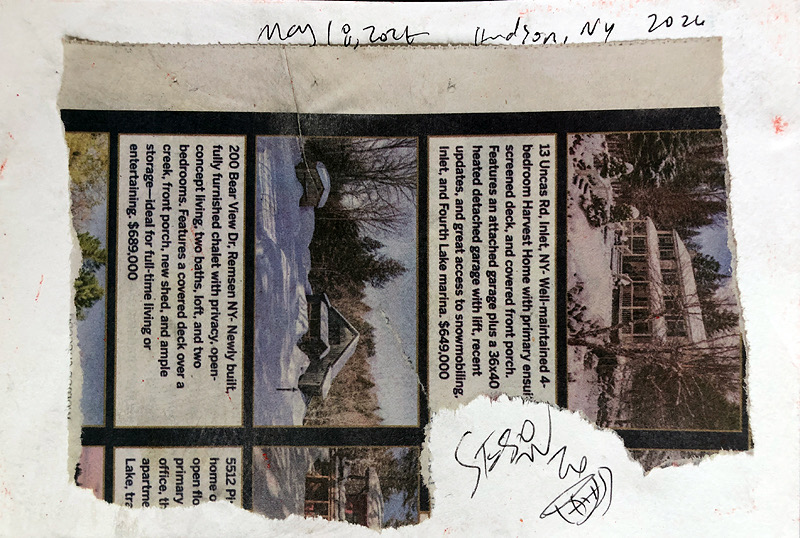 May 18, 2026 Hudson, NY 2026
13 Uncas Rd, Inlet, NY- Well-maintained 4-
bedroom Harvest Home with primary ensui
screened deck, and covered front porch.
Features an attached garage plus a 36x40
heated detached garage with lift, recent
updates, and great access to snowmobiling,
Inlet, and Fourth Lake marina. $649,000
200 Bear View Dr, Remsen NY- Newly built,
fully furnished chalet with privacy, open-
concept living, two baths, loft, and two
bedrooms. Features a covered deck over a
creek, front porch, new shed, and ample
storage—ideal for full-time living or
entertaining. $689,000
5512 Pi
home o
open flo
primary
office, th
apartme
Lake, tra
26